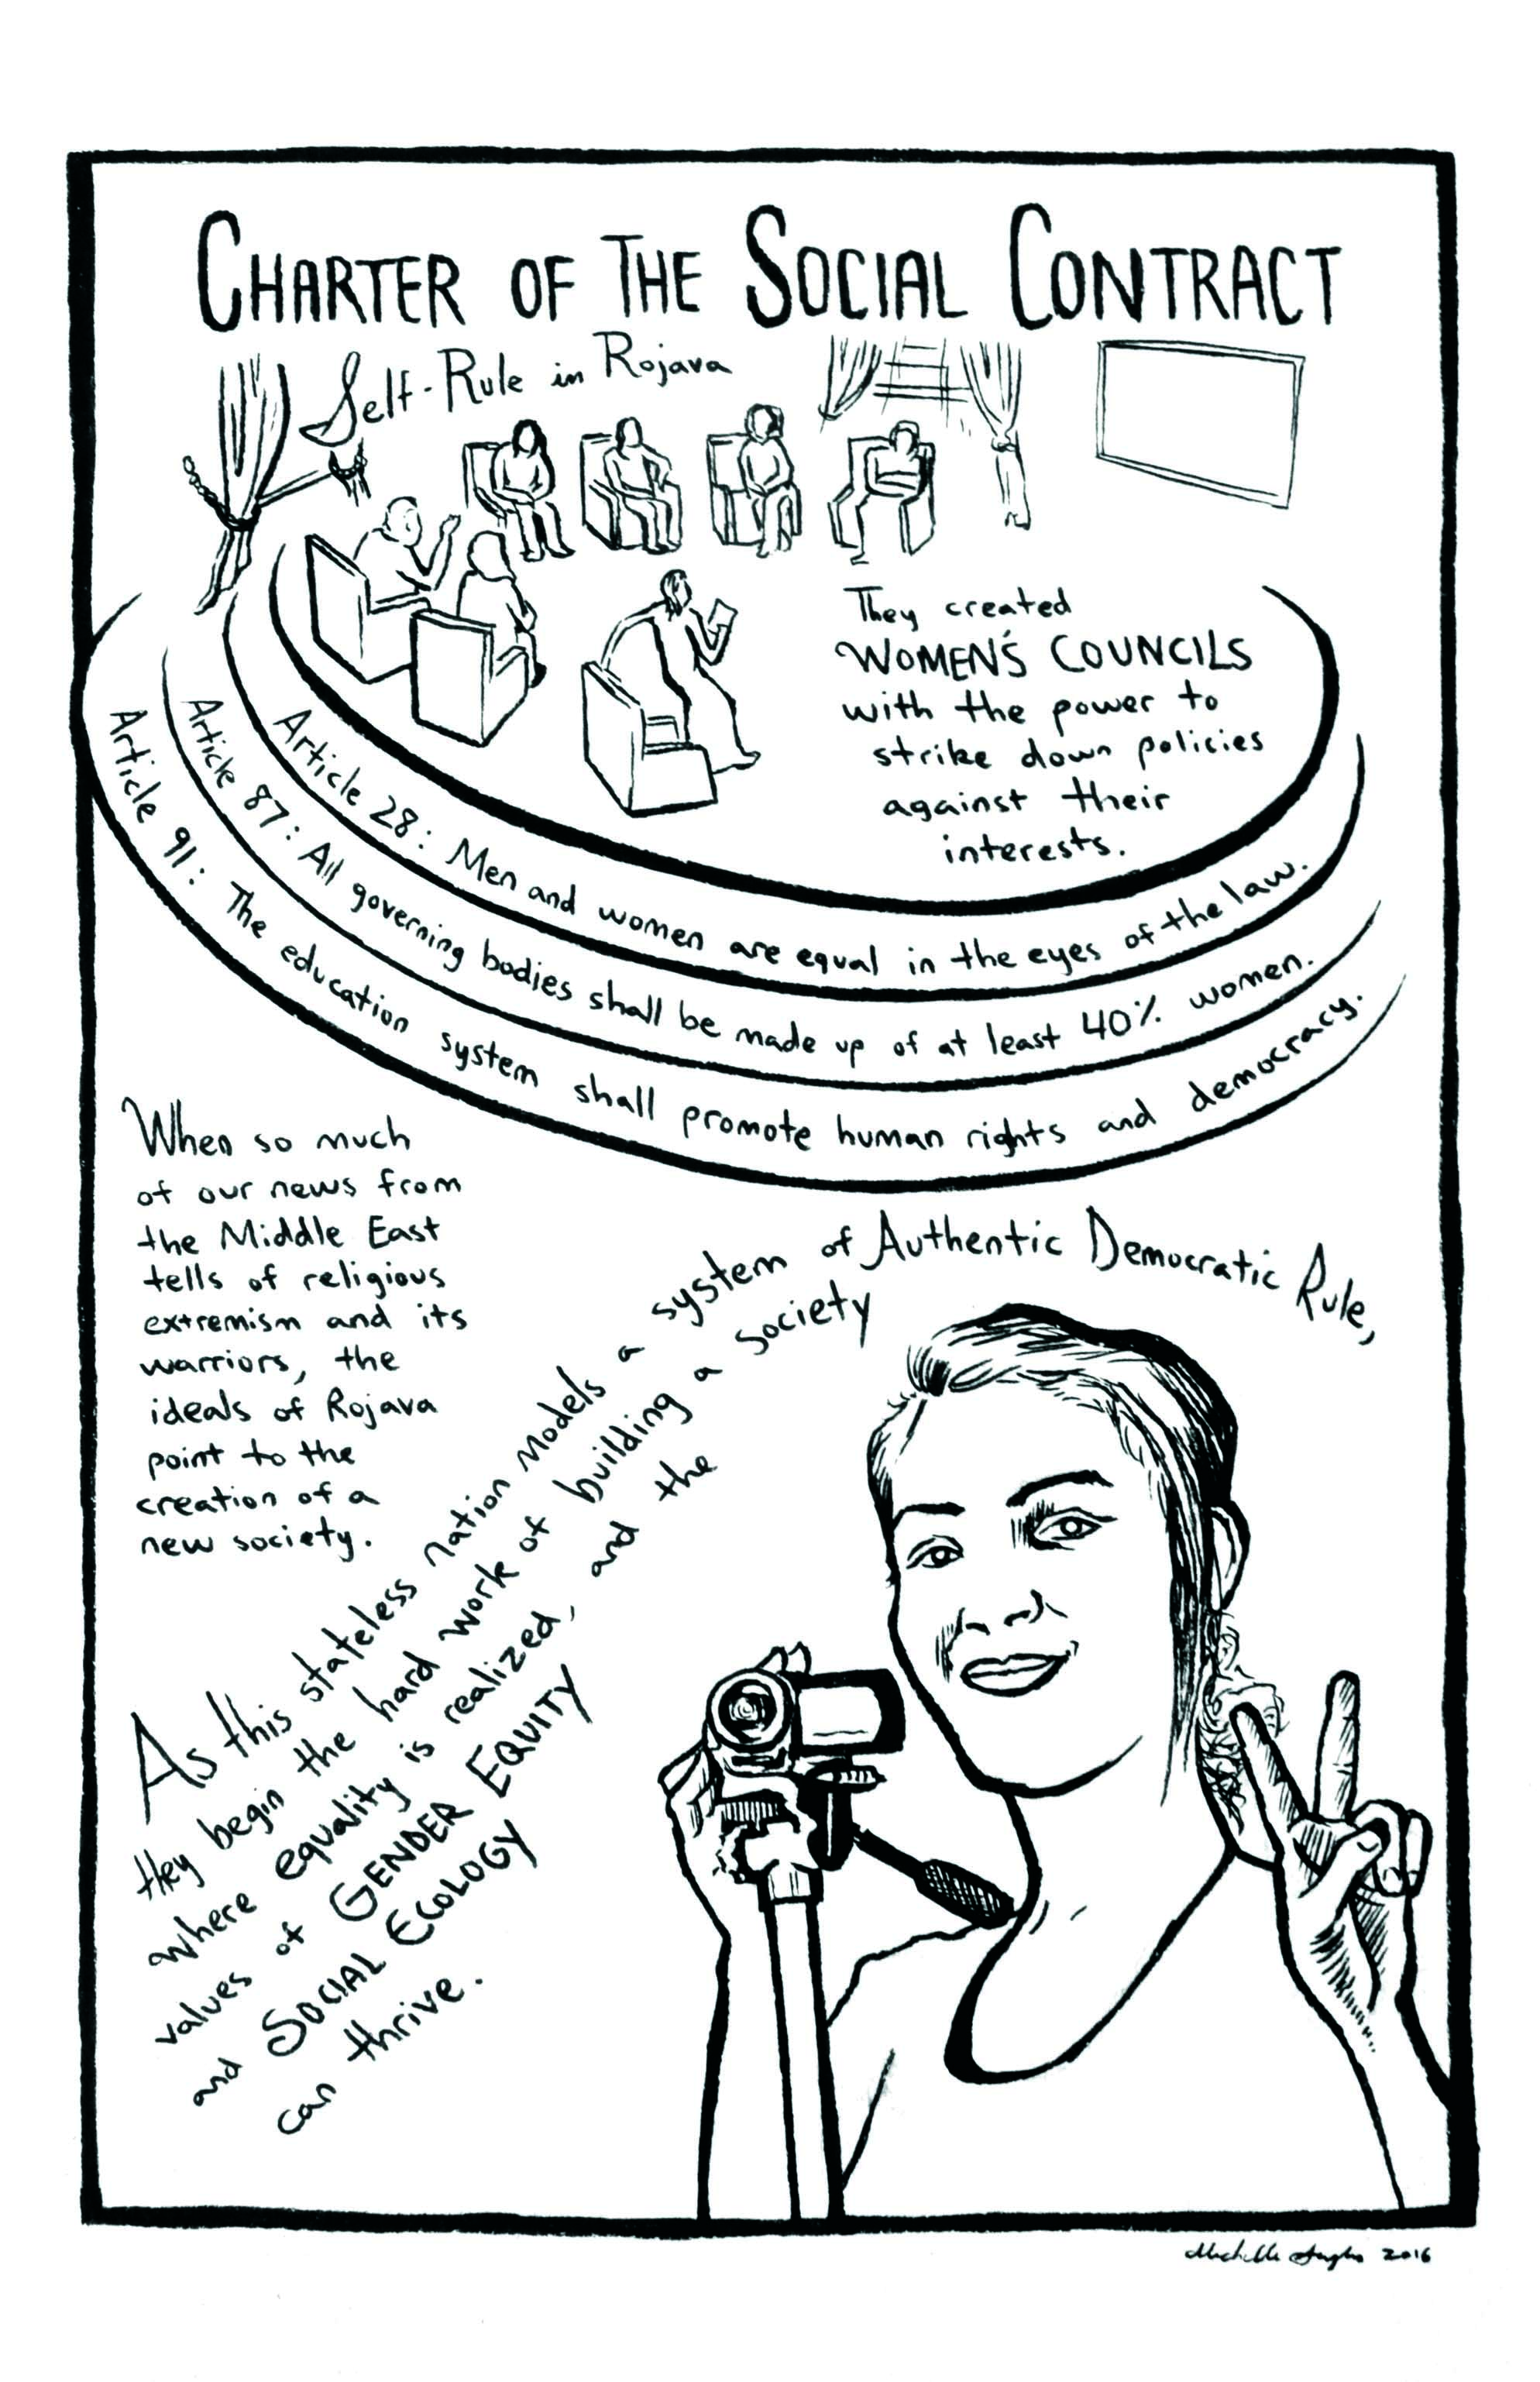 CHARTER OF THE SOCIAL CONTRACT
Self-Rule in Rojava
They created
WOMEN'S COUNCILS
with the power to
strike down policies
against their
interests.
Article 28: Men and women are equal in the eyes of the law.
Article 87: All governing bodies shall be made up of at least 40% women.
Article 91: The education system shall promote human rights and democracy.
When so much
of our news from
the Middle East
tells of religious
extremism and its
warriors, the
ideals of Rojava
point to the
creation of a
new society.
As this stateless nation models a system of Authentic Democratic Rule,
they begin the hard work of building a society
where equality is realized, and the
values of GENDER EQUITY
and SOCIAL ECOLOGY
can thrive.
Michelle 2016